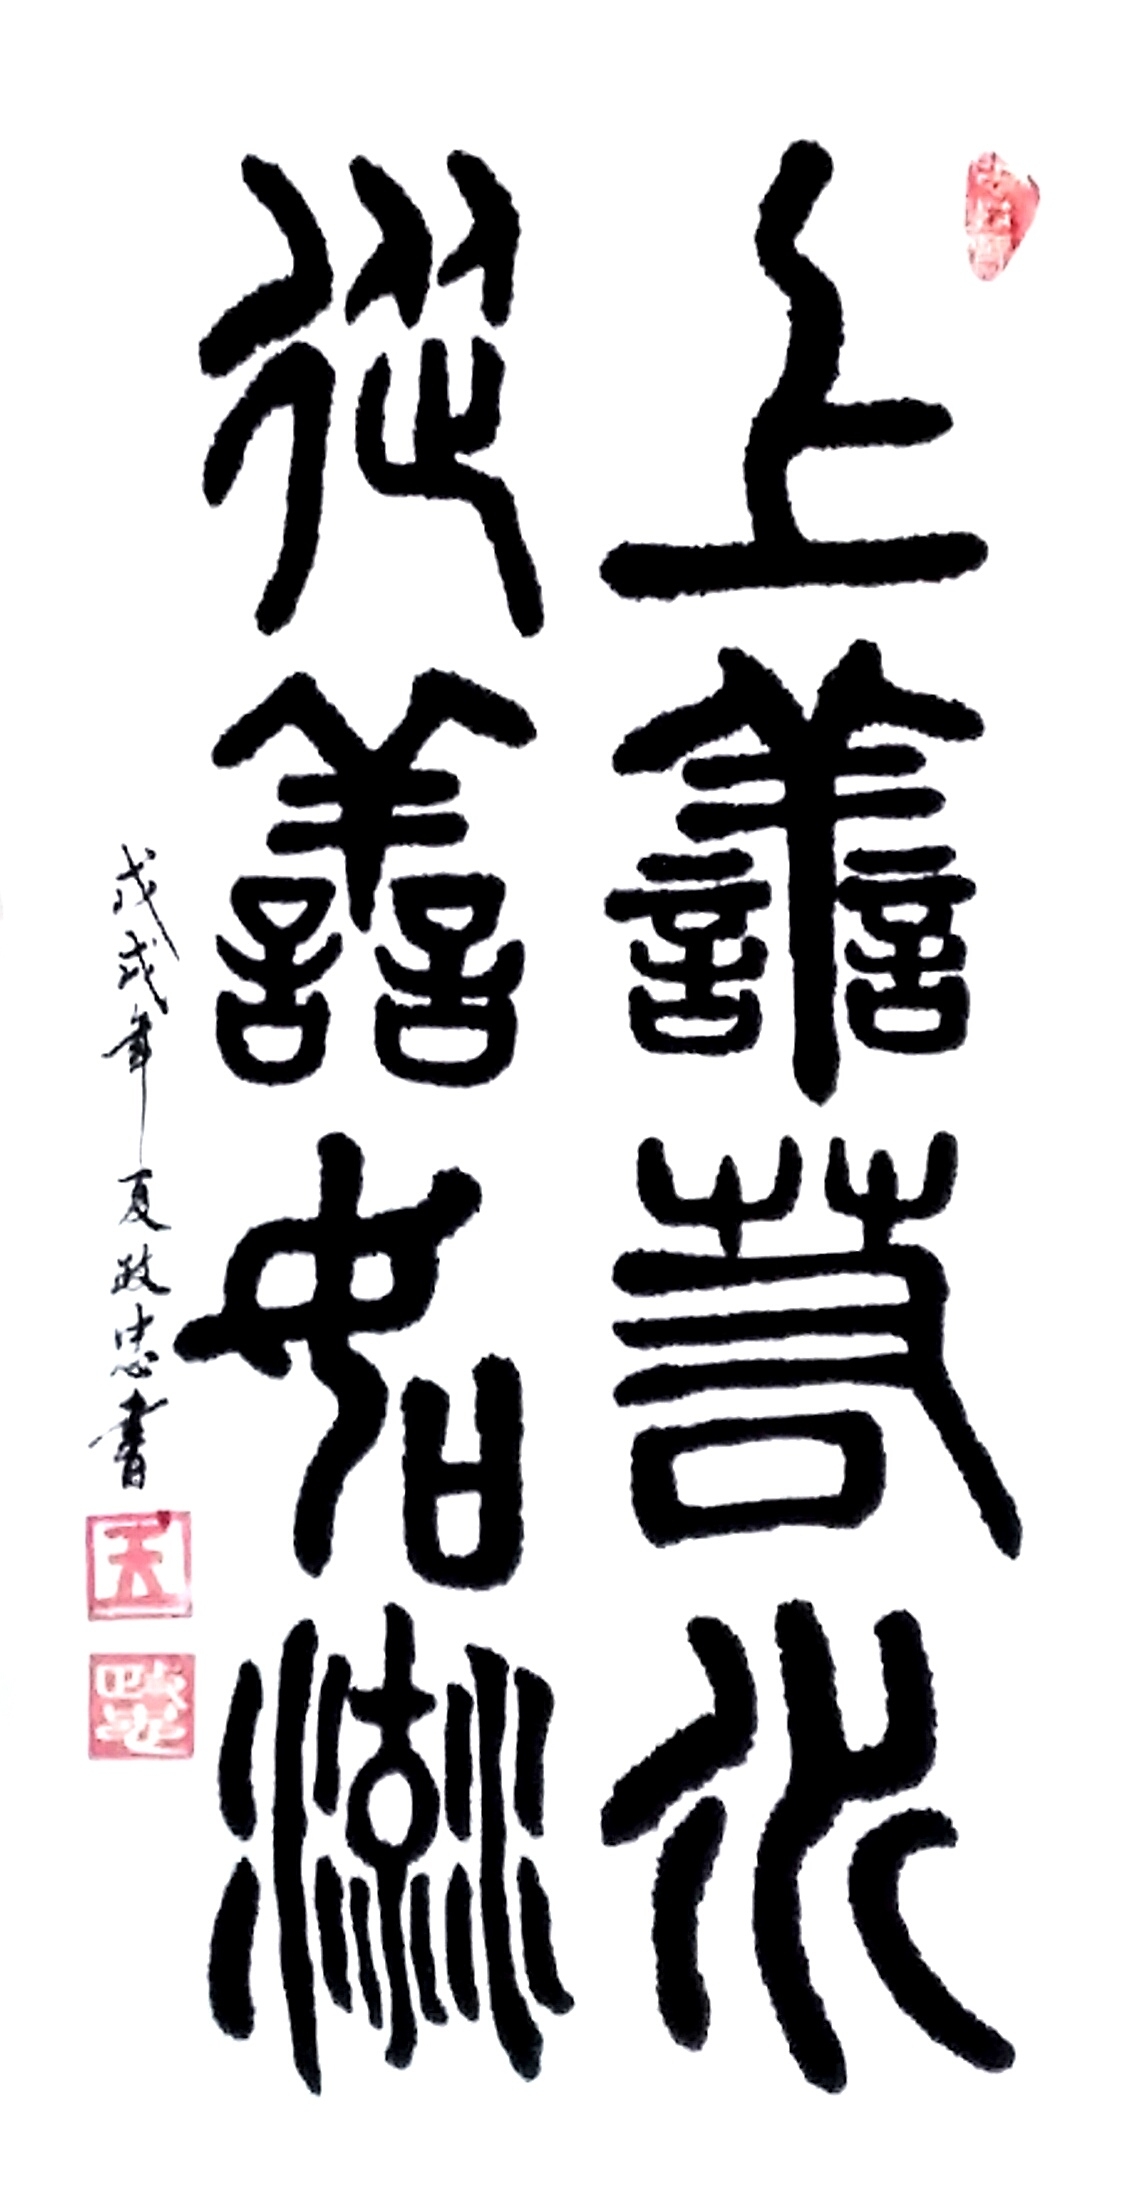 上善若水
從善如流
戊戌年夏政忠書